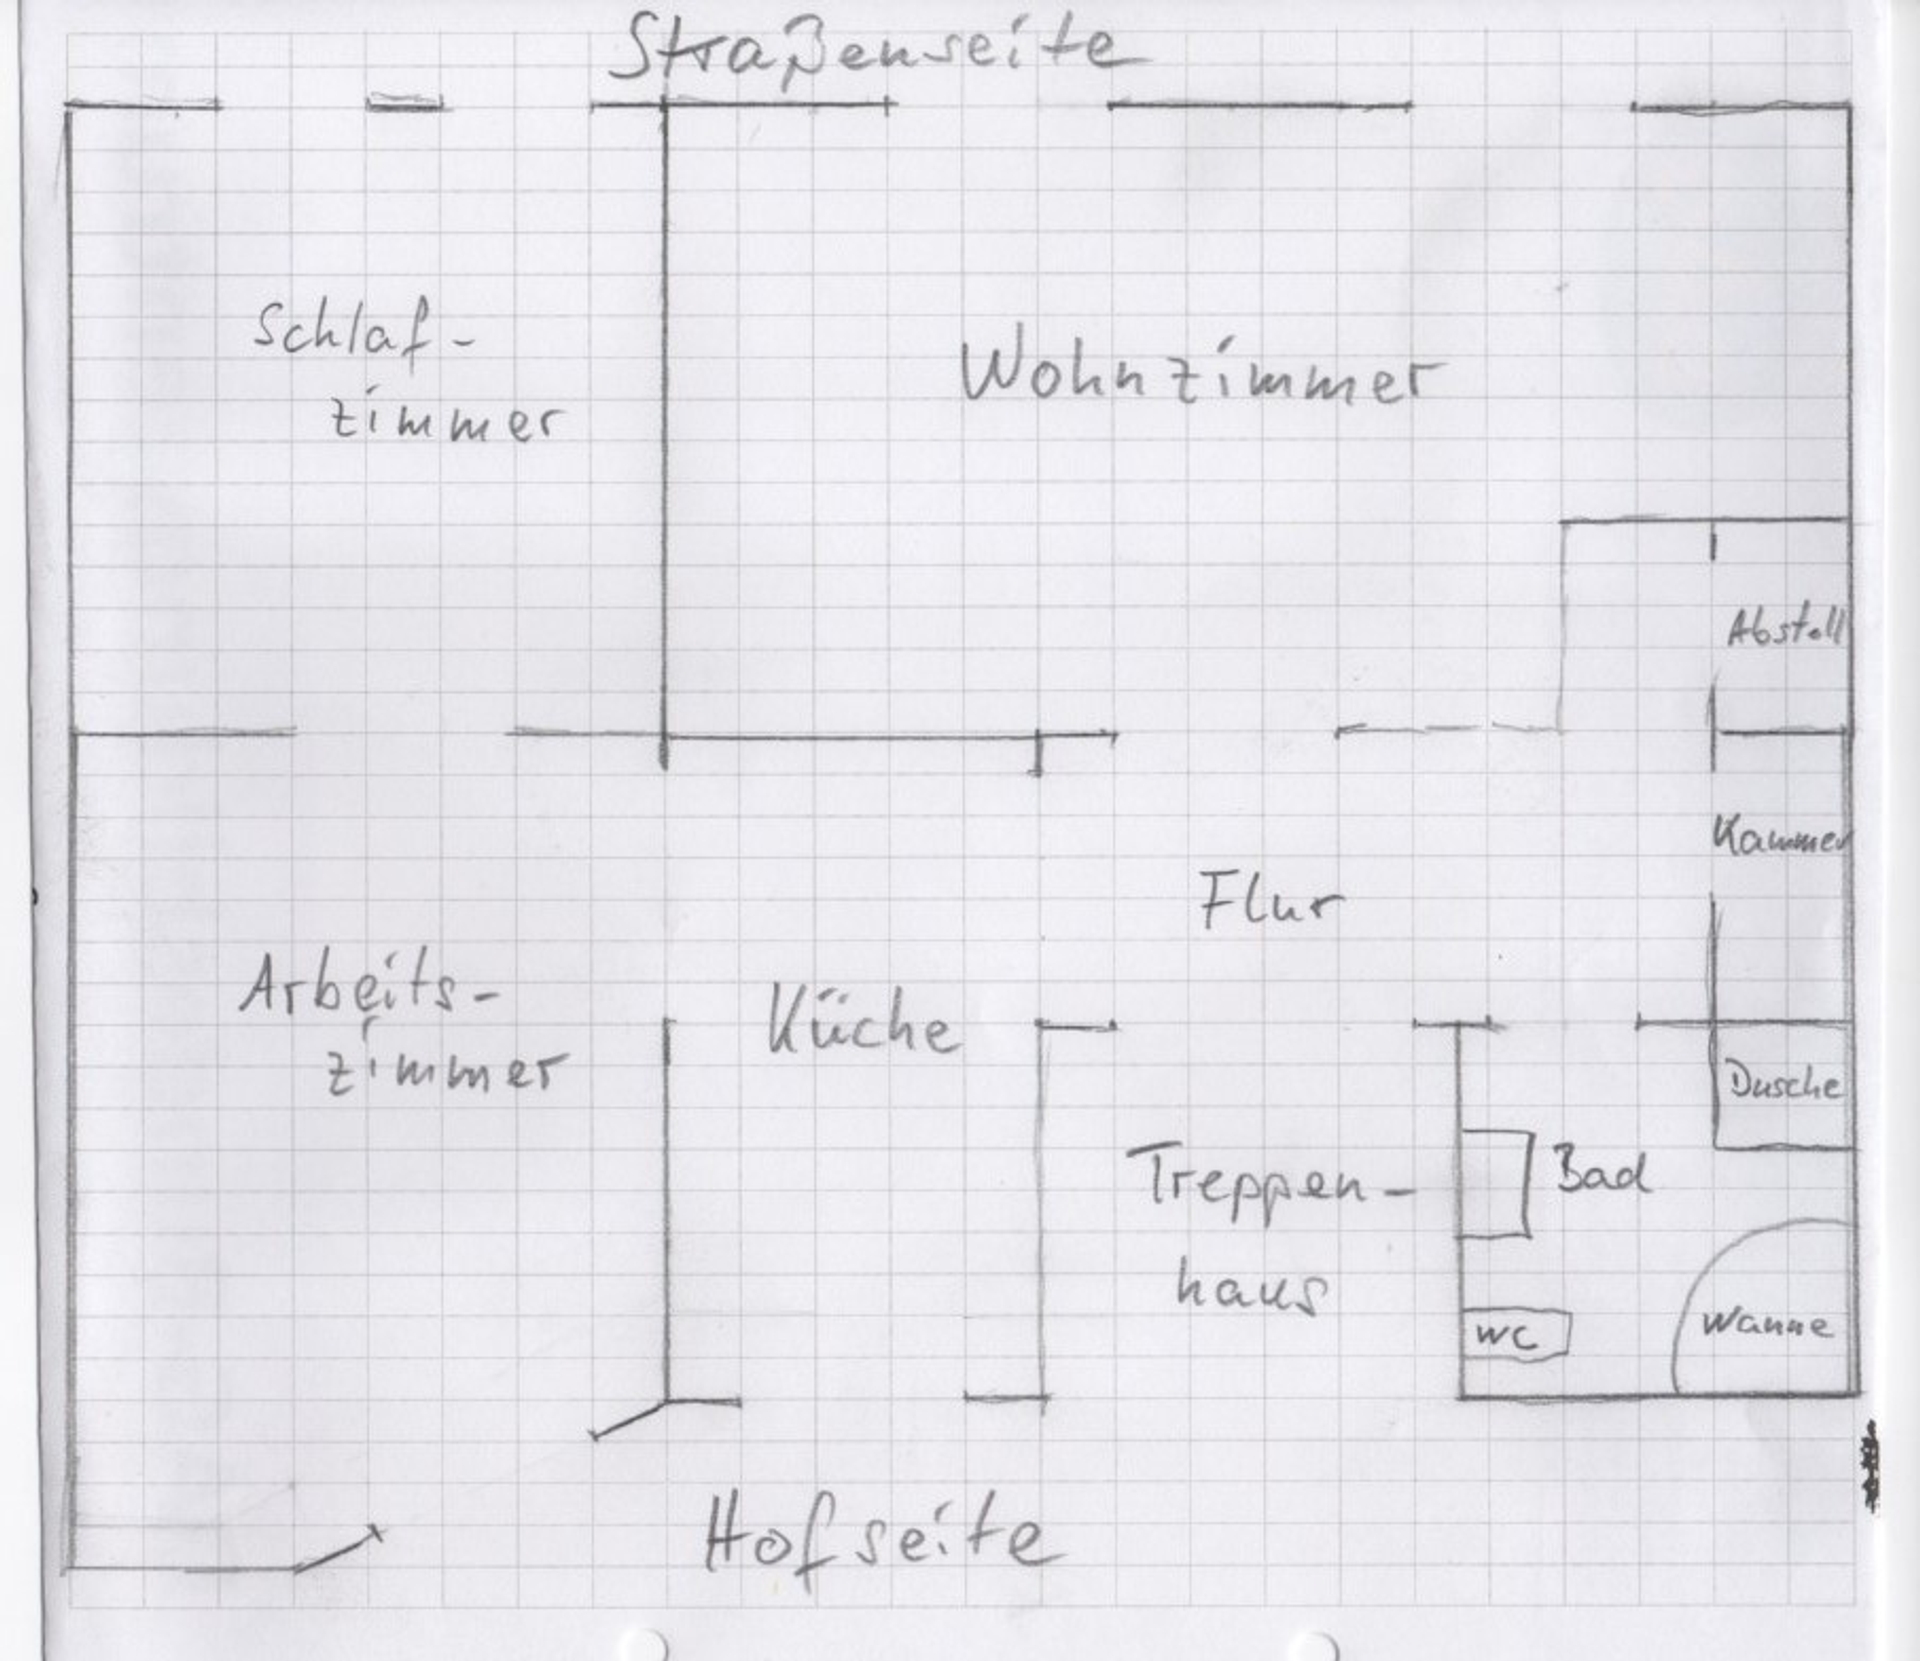 Straßenseite
Schlaf-
zimmer
Wohnzimmer
Abstell
Kammer
Flur
Arbeits-
zimmer
Küche
Dusche
Treppen-
haus
Bad
WC
Wanne
Hofseite